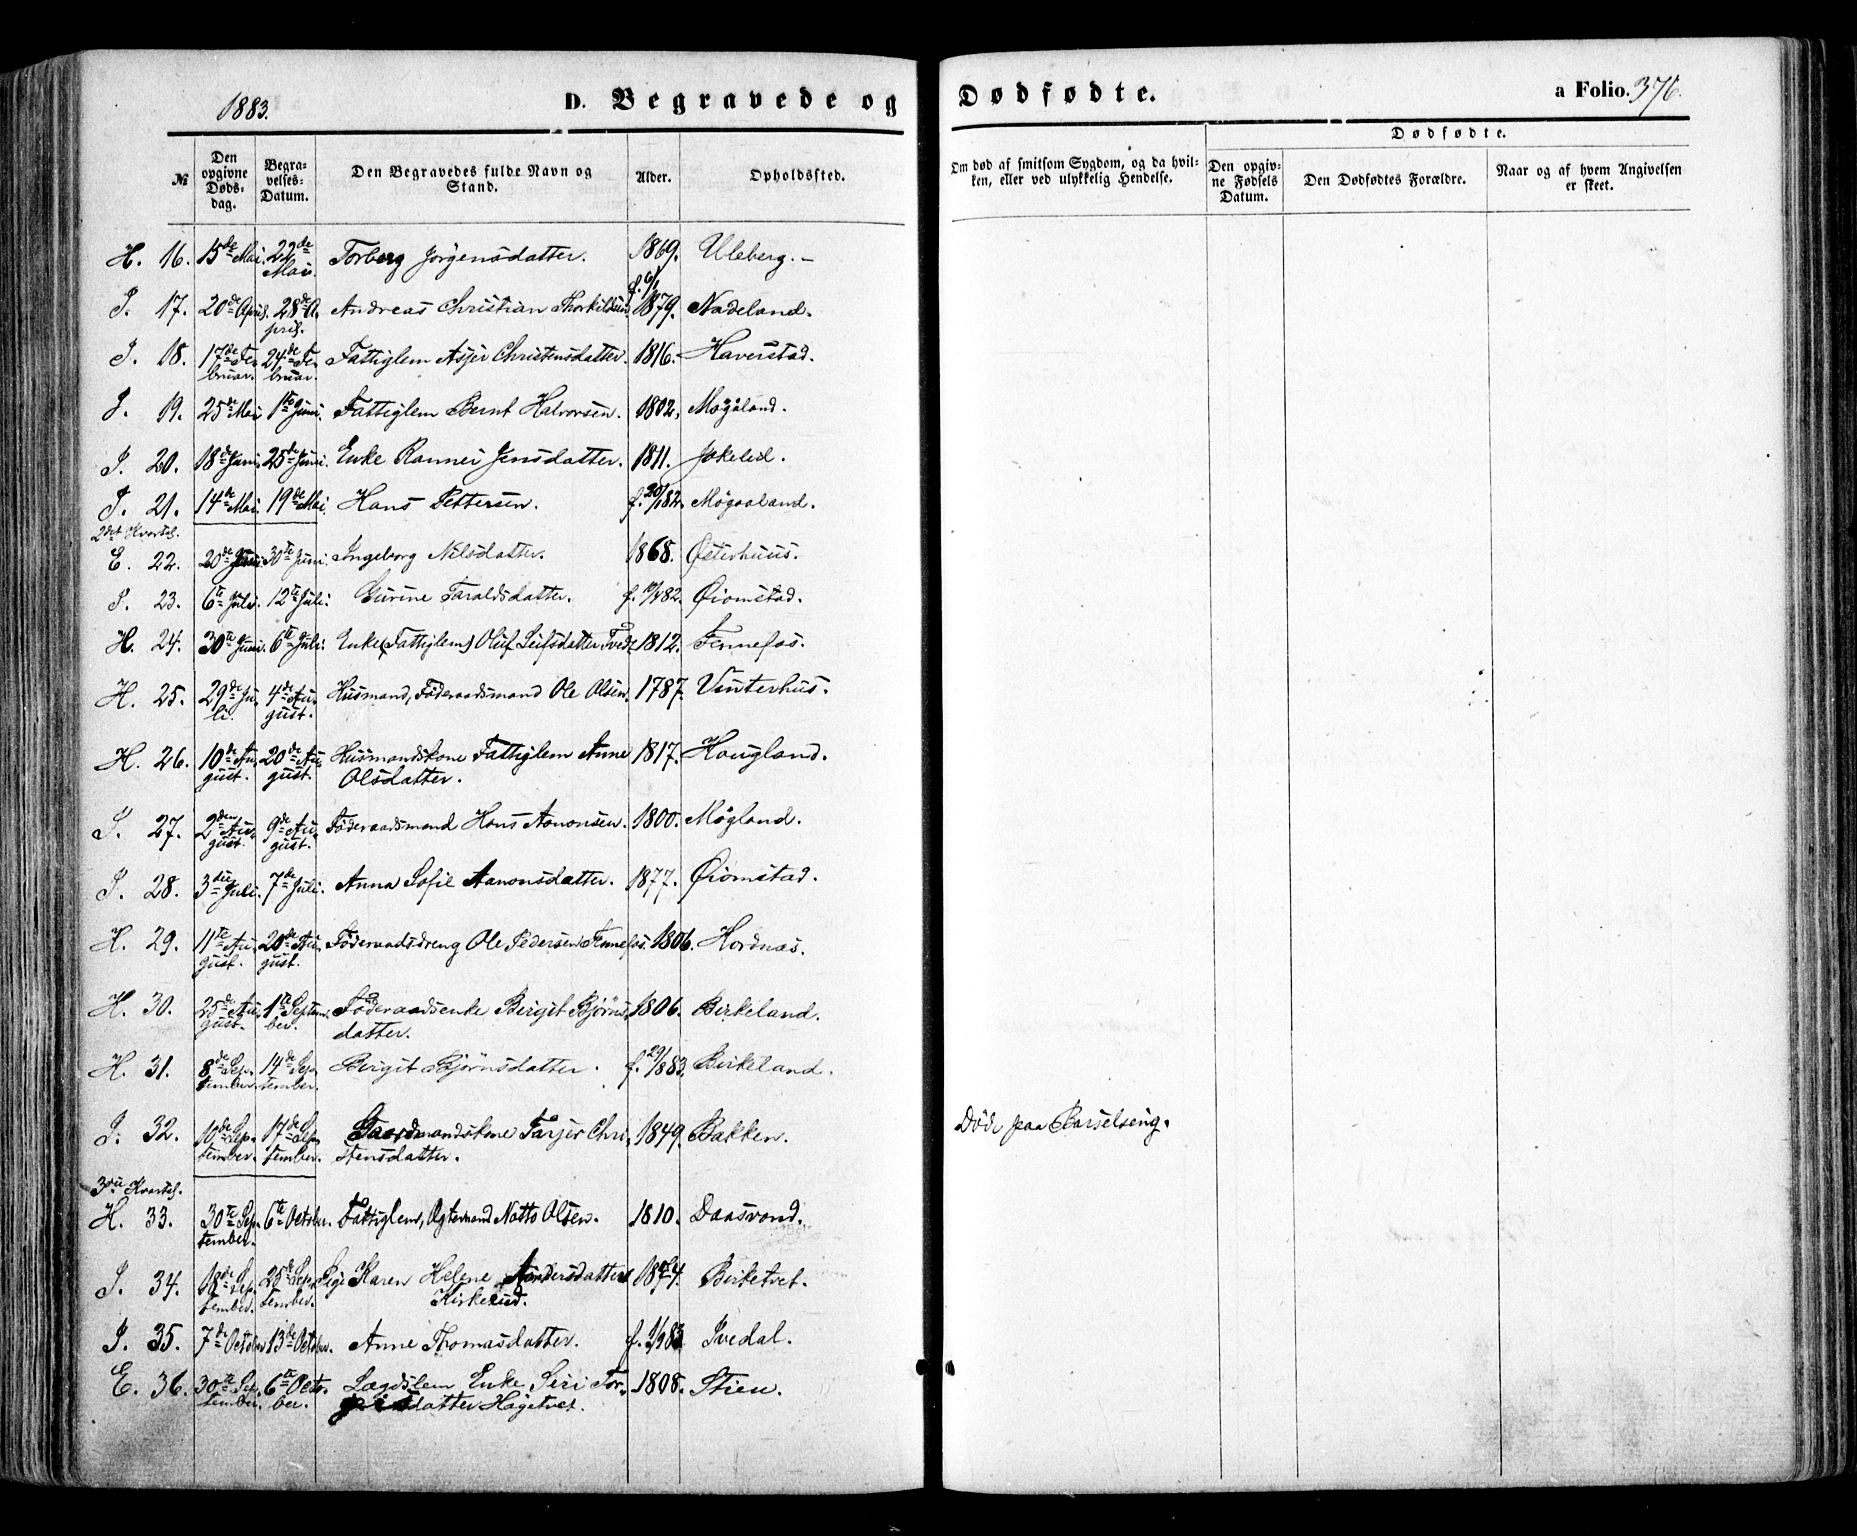 1883.
D. Begravede og Dødfødte. a Folio. 376.
№
Den opgivne Døds-dag.
Begra-velses-Datum.
Den Begravedes fulde Navn og Stand.
Alder.
Opholdssted.
Om død af smitsom Sygdom, og da hvil-ken, eller ved ulykkelig Hendelse.
Dødfødte.
Den opgiv-ne Fødsels Datum.
Den Dødfødtes Forældre.
Naar og af hvem Angivelsen er skeet.
H. 16. 15de Mai. 22de Mai. Torberg Jørgensdatter. 1869. Uleberg.
I. 17. 20de April. 28de April. Andreas Christian Thorkildsen f. 6/1 1879. Nadeland.
I. 18. 17de Februar. 24de Februar. Fattiglem Asjer Christensdatter. 1816. Haverstad.
I. 19. 25de Mai 1ste Juni. Fattiglem Bernt Halvorsen. 1802. Møgaland.
I. 20. 18de Juni. 25de Juni. Enke Rannei Jensdatter. 1811. Jokeled.
I. 21. 14de Mai. 19de Mai. Hans Pettersen. f. 20/1 82. Møgaaland.
2det Kvartal.
E. 22. 20de Juni 30te Juni. Ingeborg Nilsdatter. 1868. Østerhuus.
I. 23. 6te Juli. 12te Juli. Gurine Taraldsdatter. f. 82. Øiomstad.
H. 24. 30te Juni. 6te Juli. Enke (Fattiglem) Oluf Leifsdatter Tvedt 1812. Fennefos.
H. 25. 29de Juli. 4de August. Husmand, Føderaadsmand Ole Olsen. 1787. Vinterhus.
H. 26. 10de August. 20de August. Husmandskone Fattiglem Anne 1817. Hougland.
Olsdatter.
I. 27. 2den August. 9de August. Føderaadsmand Hans Aanonsen. 1800. Møgland.
I. 28. 3die Juli. 7de Juli. Anna Sofie Aanonsdatter. 1877. Øiomstad.
H. 29. 11te August. 20de August. Føderaadsdreng Ole Pedersen Fennefos. 1806. Hordnæs.
H. 30. 25de August. 1ste September. Føderaadsenke Birgit Bjørns- 1806. Birkeland.
datter.
H. 31. 8de September. 14de September. Birgit Bjørnsdatter. f. 29/8 83. Birkeland.
I. 32. 10de September. 17de September. Gaardmandskone Tarjer Chri- 1849. Bakken. Døde paa Barselseng.
stensdatter.
3die Kvartal.
H. 33. 30te September. 6te October. Fattiglem, Ægtemand Notto Olsen. 1810. Daasvand.
I. 34. 18de September. 25de September. Pige Karen Helene Andersdatter 1874. Birketvet.
Kirkerud.
I. 35. 7de October 13de October. Anne Thomasdatter. f. 1/9 83 Ivedal.
E. 36. 30te September. 6te October. Lægdslem Enke, Siri Tor- 1808. Stien.
grimsdatter Høgetvet.